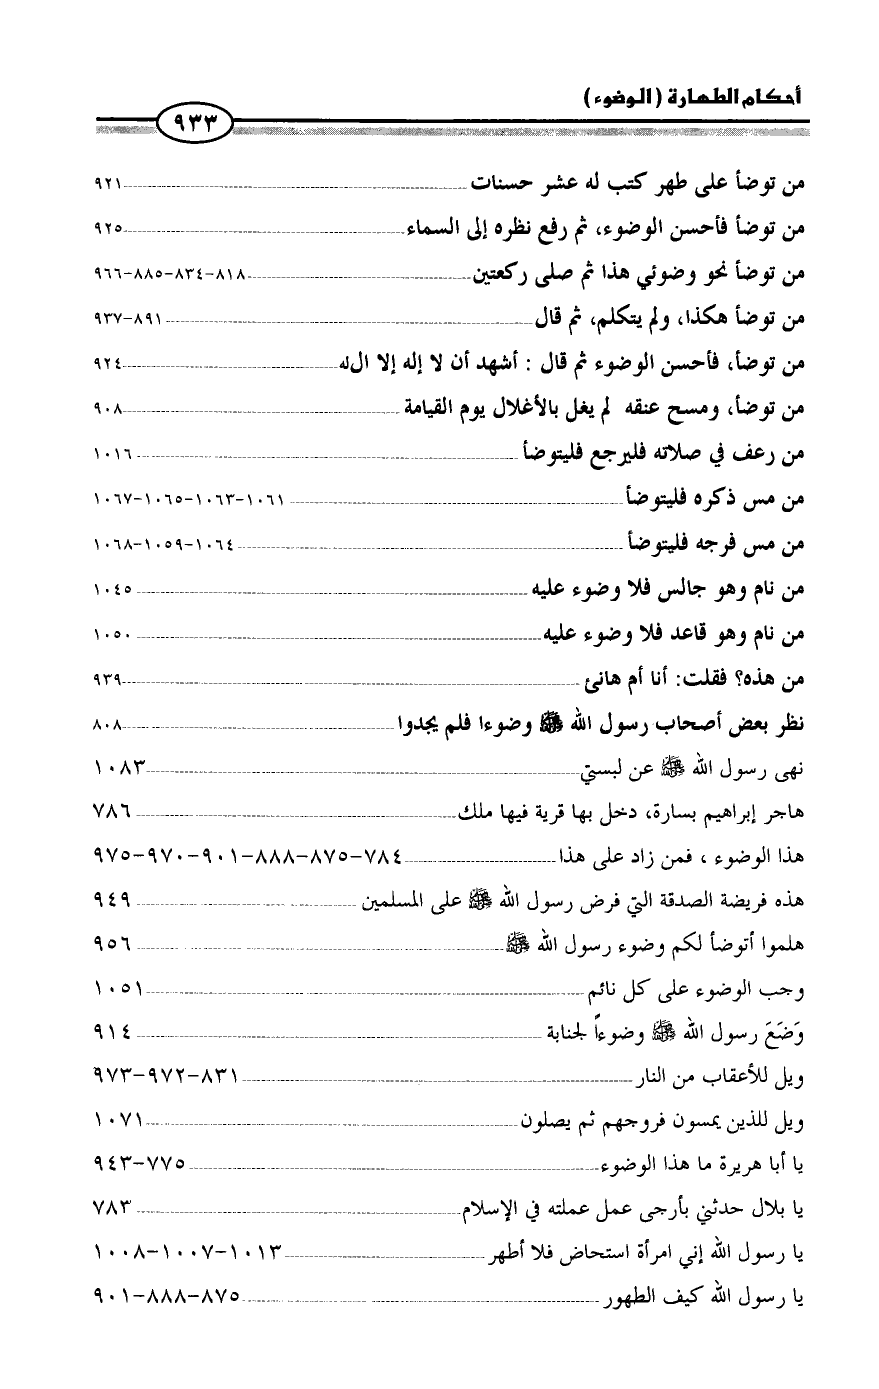 أحكام الطهارة (الوضوء)
٩٣٣
من توضأ على طهر كتب له عشر حسنات ٩٢١
من توضأ فأحسن الوضوء، ثم رفع نظره إلى السماء ٩٢٥
من توضأ نحو وضوئي هذا ثم صلى ركعتين ٨١٨-٨٣٤-٨٨٥-٩٦٦
من توضأ هكذا، ولم يتكلم، ثم قال ٨٩١-٩٣٧
من توضأ، فأحسن الوضوء ثم قال : أشهد أن لا إله إلا الله ٩٢٤
من توضأ، ومسح عنقه لم يغل بالأغلال يوم القيامة ٩٠٨
من رعف في صلاته فليرجع فليتوضأ ١٠١٦
من مس ذكره فليتوضأ ١٠٦١-١٠٦٣-١٠٦٥-١٠٦٧
من مس فرجه فليتوضأ ١٠٦٤-١٠٥٩-١٠٦٨
من نام وهو جالس فلا وضوء عليه ١٠٤٥
من نام وهو قاعد فلا وضوء عليه ١٠٥٠
من هذه؟ فقلت: أنا أم هانئ ٩٣٩
نظر بعض أصحاب رسول الله ﷺ وضوءا فلم يجدوا ٨٠٨
نهى رسول الله ﷺ عن لبستي ١٠٨٣
هاجر إبراهيم بسارة، دخل بها قرية فيها ملك ٧٨٦
هذا الوضوء ، فمن زاد على هذا ٧٨٤-٨٧٥-٨٨٨-٩٠١-٩٧٠-٩٧٥
هذه فريضة الصدقة التي فرض رسول الله ﷺ على المسلمين ٩٤٩
هلموا أتوضأ لكم وضوء رسول الله ﷺ ٩٥٦
وجب الوضوء على كل نائم ١٠٥١
وَضَعَ رسول الله ﷺ وضوءاً لجنابة ٩١٤
ويل للأعقاب من النار ٨٣١-٩٧٢-٩٧٣
ويل للذين يمسون فروجهم ثم يصلون ١٠٧١
يا أبا هريرة ما هذا الوضوء ٧٧٥-٩٤٣
يا بلال حدثني بأرجى عمل عملته في الإسلام ٧٨٣
يا رسول الله إني امرأة استحاض فلا أطهر ١٠١٣-١٠٠٧-١٠٠٨
يا رسول الله كيف الطهور ٨٧٥-٨٨٨-٩٠١